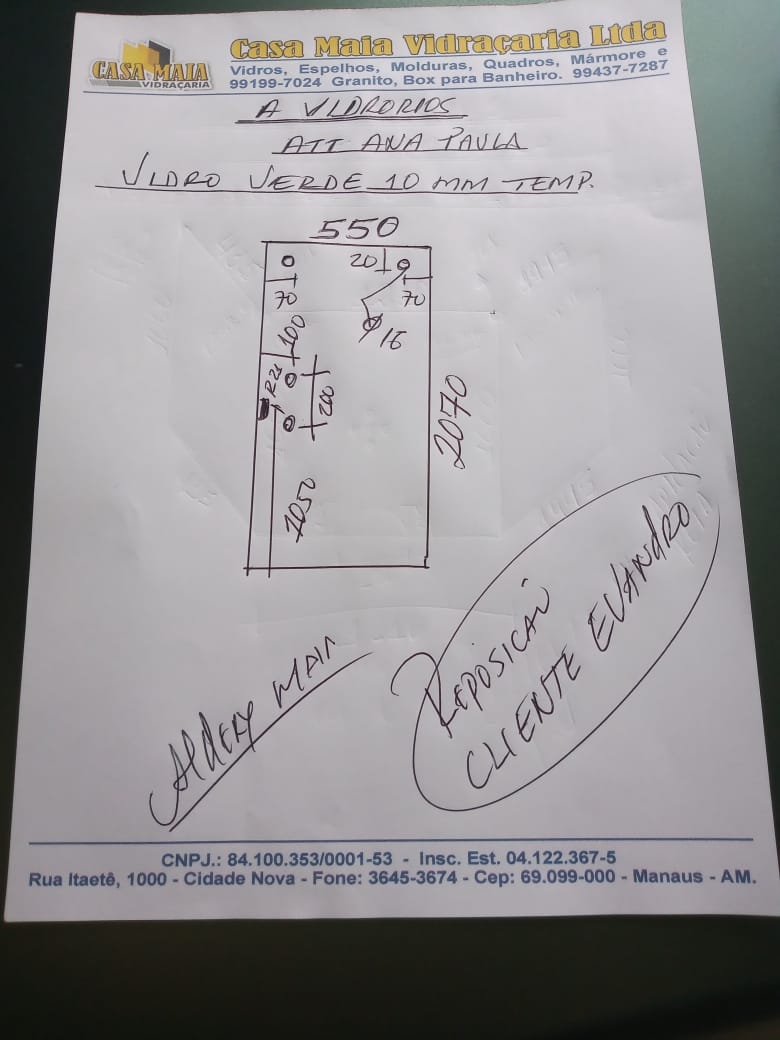 CASA MAIA
VIDRAÇARIA
Casa Maia Vidraçaria Ltda
Vidros, Espelhos, Molduras, Quadros, Mármore e
99199-7024 Granito, Box para Banheiro. 99437-7287
A VIDRORIOS
ATT ANA PAULA
VIDRO VERDE 10 MM TEMP.
550
20
70
70
16
100
200
2070
1050
REPOSICAÕ
CLIENTE EVANDRO
ALDERY MAIA
CNPJ.: 84.100.353/0001-53 - Insc. Est. 04.122.367-5
Rua Itaetê, 1000 - Cidade Nova - Fone: 3645-3674 - Cep: 69.099-000 - Manaus - AM.